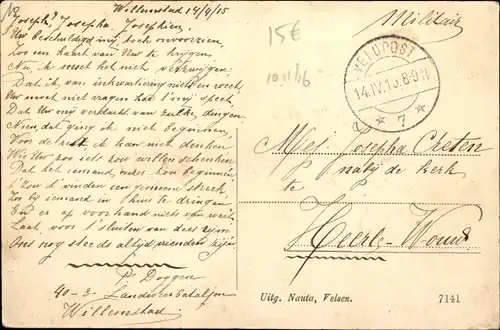 Willemstad 14/4/15
Joseph? Josepha Josephien,
Uw beschuldiging toch onvoorzien,
Zoo een kaart van Uw te krijgen
Nu ik moet het niet verzwijgen
Dat ik van inkwartiering niets en weet,
Uw moet niet vragen had 't mij speet,
Dat Uw mij verdacht van zulke dingen
Neen, dat ging ik niet beginnen,
Voor de rest ik kan niet denken
Wie Uw zoo iets zou willen schenken
Dat het iemand onzer hou beginnen
'k Zou 't vinden een gemeene streek
Zoo bij iemand in thuis te dringen
En er op voorhand niets van weet
Laat, voor 't sluiten van dees zijn
Ons nog steeds altijd vrienden zijn
P. Doggen
40-3- Landweerbataljon
Willemstad
Militair
15€
10.11/16
VELDPOST
14.IV.15.8-9V
* 7 *
Mej. Josepha Creten
nabij de kerk
te
Heerle-Wouw
Uitg. Nauta, Velsen.
7141